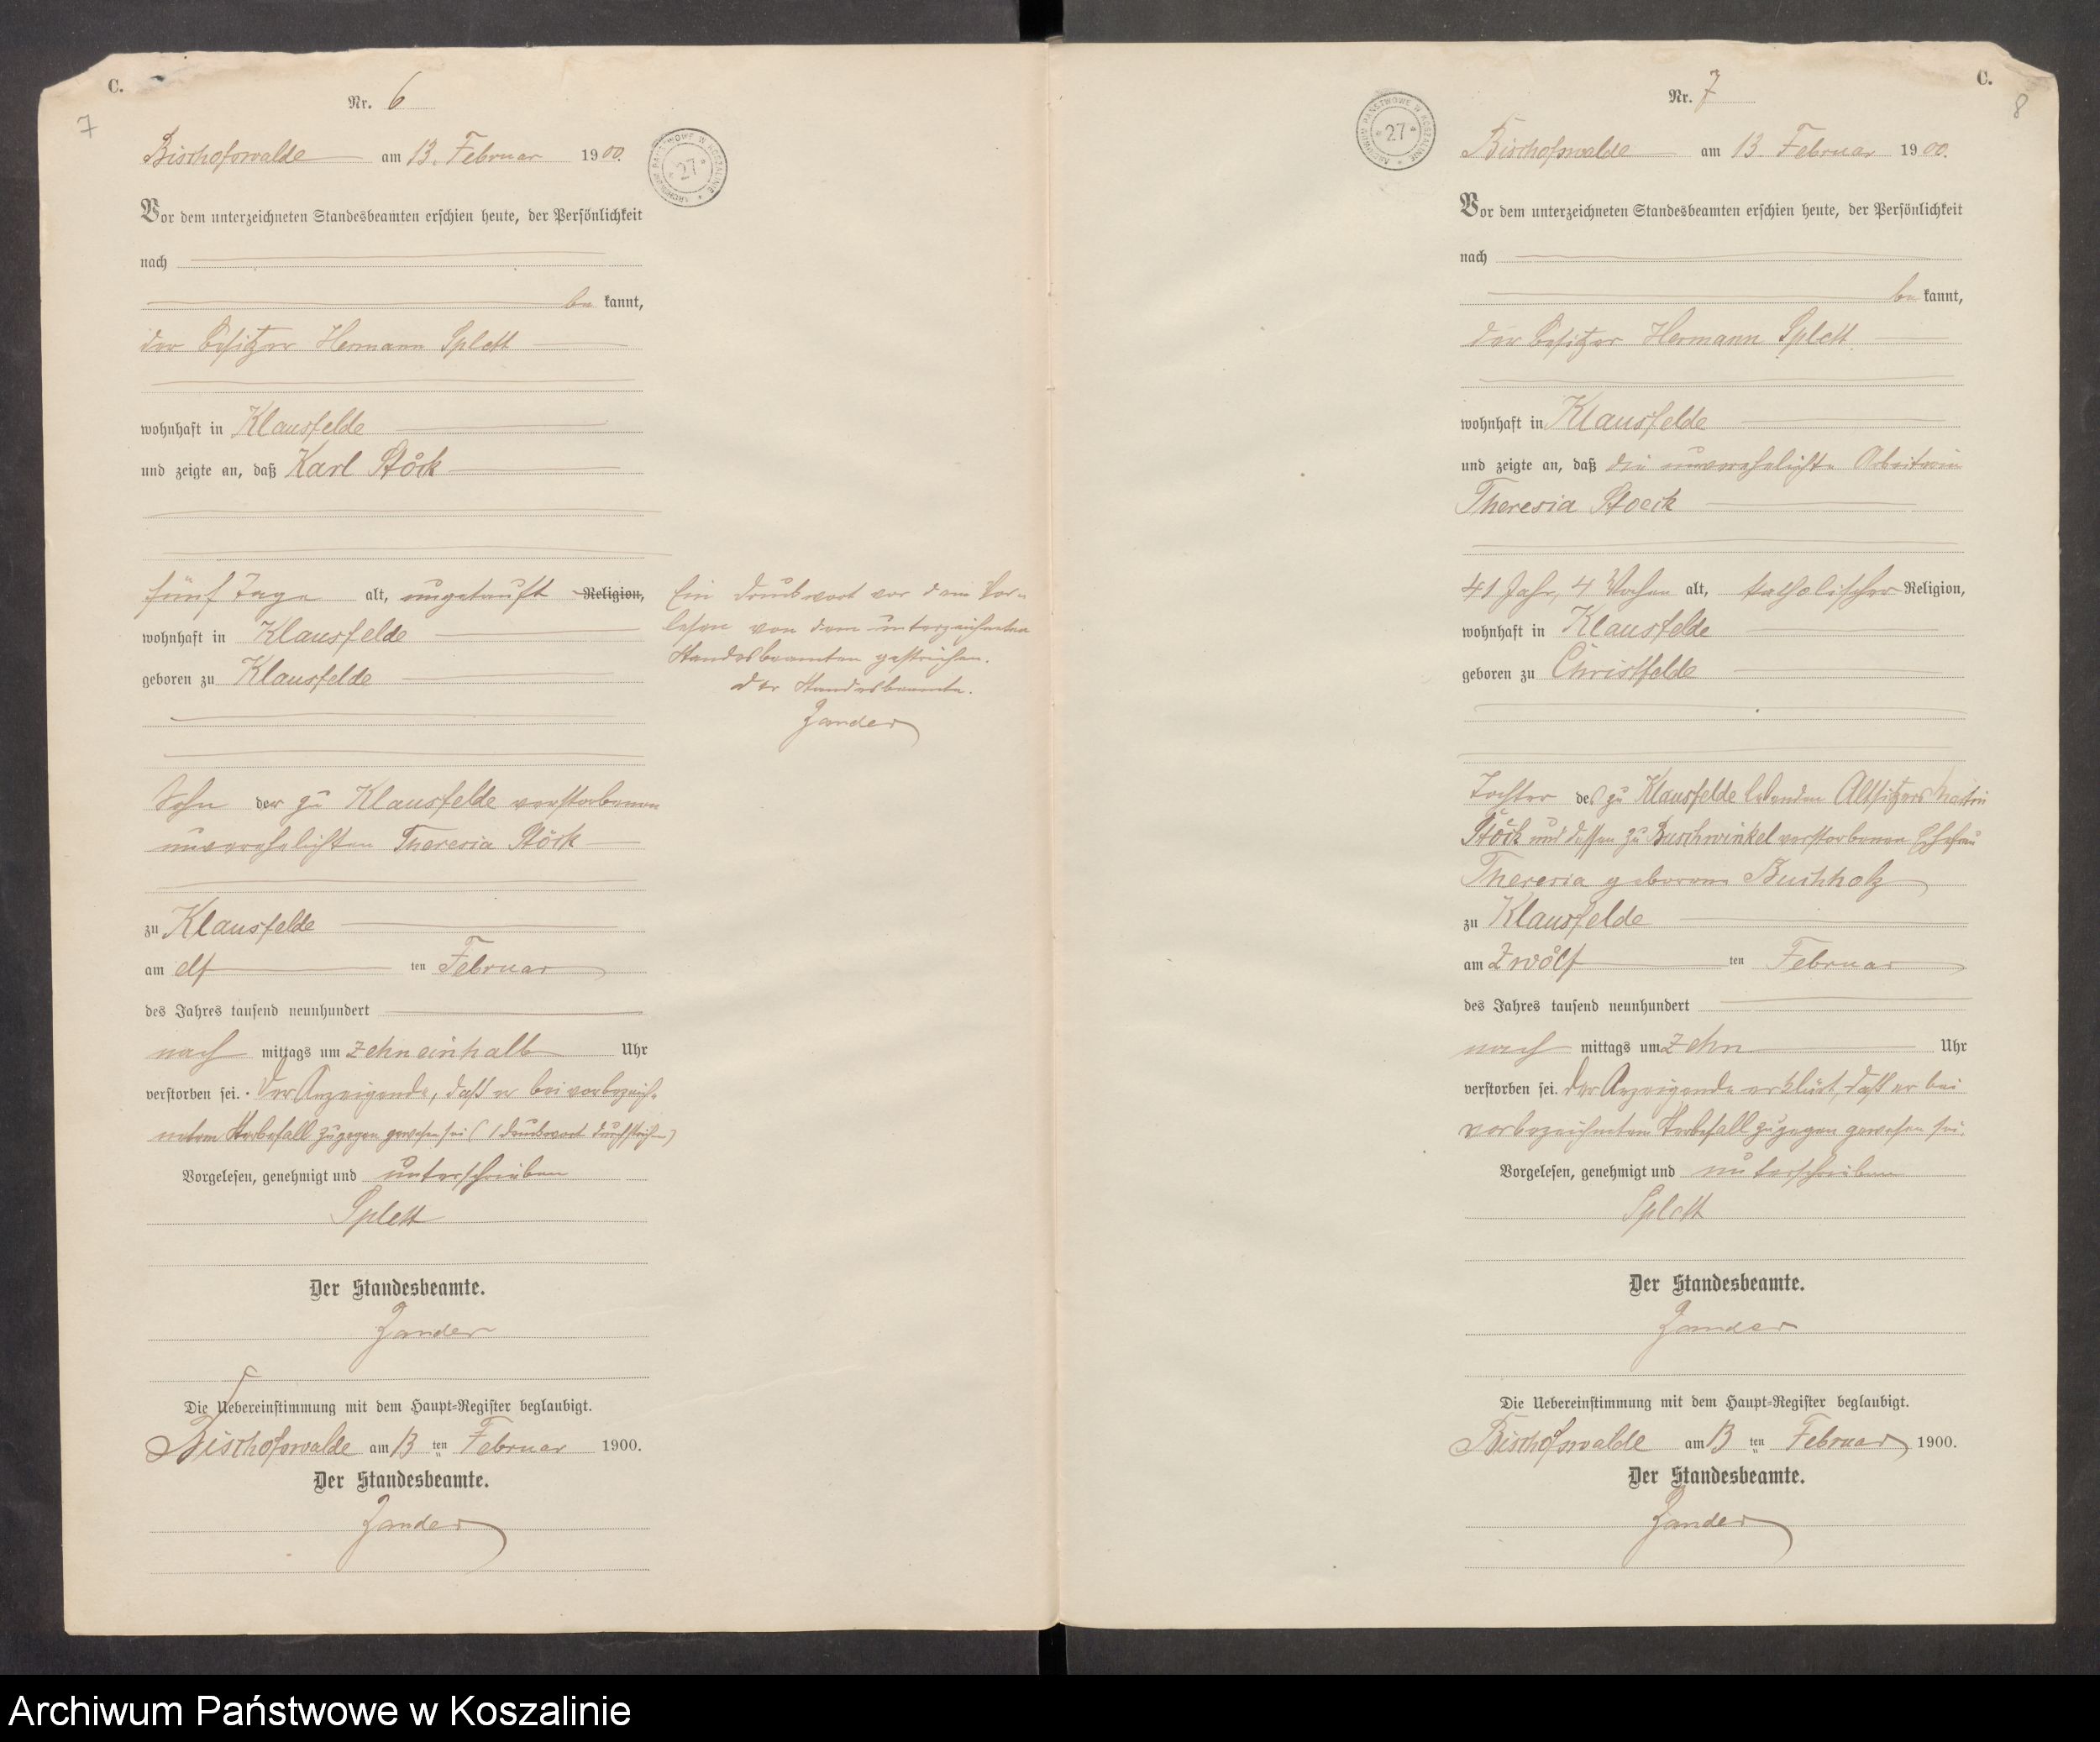 C.
7
Nr. 6
Bischofswalde am 13. Februar 1900.
ARCHIWUM PAŃSTWOWE W KOSZALINIE * 27 *
Vor dem unterzeichneten Standesbeamten erschien heute, der Persönlichkeit
nach
be kannt,
der Besitzer Hermann Splett
wohnhaft in Klausfelde
und zeigte an, daß Karl Stöck
fünf Tage alt, ungetauft Religion,
wohnhaft in Klausfelde
geboren zu Klausfelde
Ein Druckwort vor dem Vor-
lesen von dem unterzeichneten
Standesbeamten gestrichen.
Der Standesbeamte.
Zander
Sohn der zu Klausfelde verstorbenen
unverehelichten Theresia Stöck
zu Klausfelde
am elf ten Februar
des Jahres tausend neunhundert
nach mittags um zehneinhalb Uhr
verstorben sei. Der Anzeigende, daß er bei vorbezeich-
netem Sterbefall zugegen gewesen sei (1 Druckwort durchstrichen)
Vorgelesen, genehmigt und unterschrieben
Splett
Der Standesbeamte.
Zander
Die Uebereinstimmung mit dem Haupt-Register beglaubigt.
Bischofswalde am 13 ten Februar 1900.
Der Standesbeamte.
Zander
C.
8
Nr. 7
ARCHIWUM PAŃSTWOWE W KOSZALINIE * 27 *
Bischofswalde am 13. Februar 1900.
Vor dem unterzeichneten Standesbeamten erschien heute, der Persönlichkeit
nach
be kannt,
der Besitzer Hermann Splett
wohnhaft in Klausfelde
und zeigte an, daß die unverehelichte Arbeiterin
Theresia Stoeck
41 Jahr, 4 Wochen alt, katholischer Religion,
wohnhaft in Klausfelde
geboren zu Christfelde
Tochter des zu Klausfelde lebenden Altsitzers Martin
Stöck und dessen zu Buschwinkel verstorbenen Ehefrau
Theresia geborene Buchholz
zu Klausfelde
am Zwölf ten Februar
des Jahres tausend neunhundert
nach mittags um zehn Uhr
verstorben sei. Der Anzeigende erklärt, daß er bei
vorbezeichnetem Sterbefall zugegen gewesen sei.
Vorgelesen, genehmigt und unterschrieben
Splett
Der Standesbeamte.
Zander
Die Uebereinstimmung mit dem Haupt-Register beglaubigt.
Bischofswalde am 13 ten Februar 1900.
Der Standesbeamte.
Zander
Archiwum Państwowe w Koszalinie